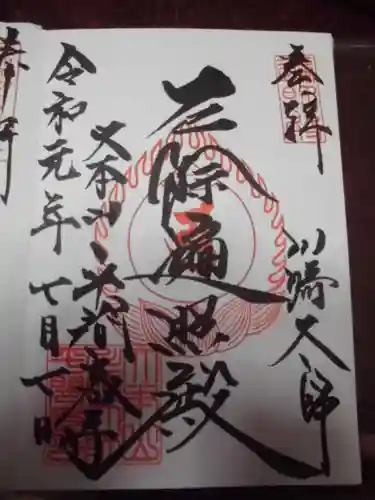 奉拝
川崎大師
厄除遍照殿
大本山平間教寺
令和元年七月七日
奉拝